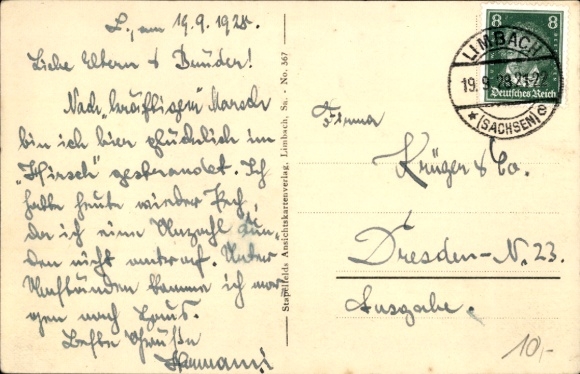 L., am 19.9.1928.
Liebe Eltern & Brüder!
Nach „kräftigem" Marsch
bin ich hier glücklich im
„Hirsch" gestrandet. Ich
hatte heute wieder Pech,
da ich eine Anzahl Kun-
den nicht antraf. Unter
Umständen komme ich mor
gen nach Haus.
Beste Grüße
Stapelfelds Ansichtskartenverlag, Limbach, Sa. - No. 367
8 8
Deutsches Reich
LIMBACH
19.9.28.21-22
(SACHSEN)
Firma
Krüger & Co.
Dresden-N. 23.
Ausgabe.
10,-